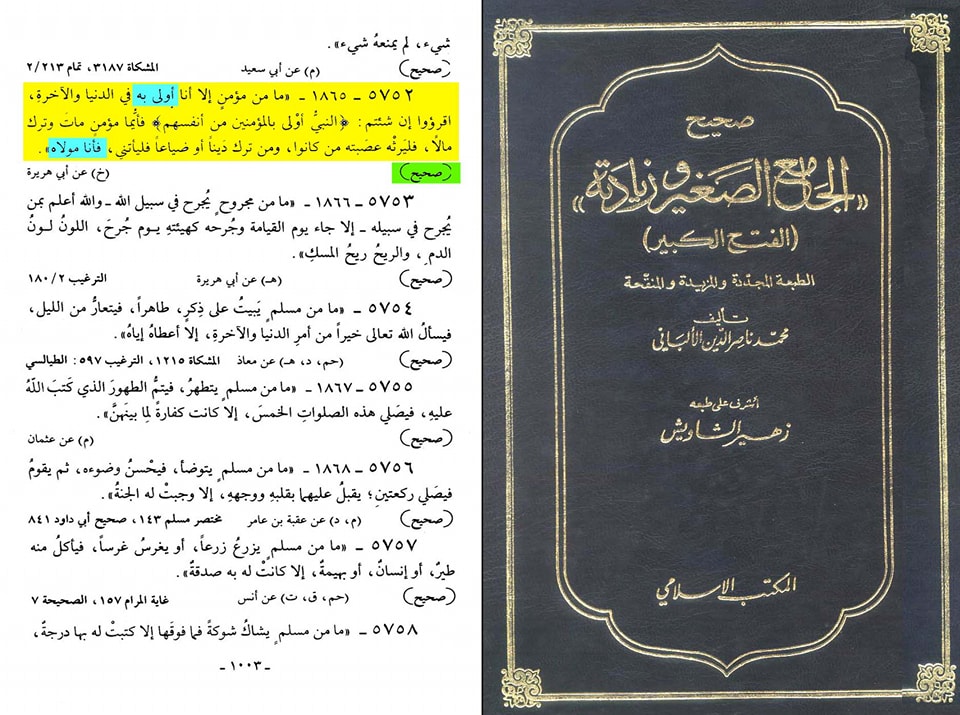 شيء، لم يمنعهُ شيء».
(صحيح) (م) عن أبي سعيد المشكاة ٣١٨٧، تمام ٢/٢١٣
٥٧٥٢ - ١٨٦٥ - «ما من مؤمنٍ إلا أنا أولى به في الدنيا والآخرةِ،
اقرؤوا إن شئتم: ﴿النبيُّ أوْلى بالمؤمنين من أنفسهم﴾ فأيُّما مؤمنٍ ماتَ وترك
مالًا، فليَرثْه عصَبته من كانوا، ومن ترك دَيناً أو ضياعاً فليأتني، فأنا مولاه».
(صحيح) (خ) عن أبي هريرة
٥٧٥٣ - ١٨٦٦ - «ما من مجروحٍ يُجرح في سبيل الله - والله أعلم بمن
يُجرح في سبيله - إلا جاء يوم القيامة وجُرحه كهيئتهِ يوم جُرحَ، اللونُ لونُ
الدمِ، والريحُ ريحُ المسكِ».
(صحيح) (هـ) عن أبي هريرة الترغيب ٢/١٨٠
٥٧٥٤ - «ما من مسلمٍ يَبيتُ على ذِكرٍ، طاهراً، فيتعارُّ من الليل،
فيسألُ الله تعالى خيراً من أمرِ الدنيا والآخرةِ، إلا أعطاهُ إياهُ».
(صحيح) (حم، د، هـ) عن معاذ المشكاة ١٢١٥، الترغيب ٥٩٧: الطيالسي
٥٧٥٥ - ١٨٦٧ - «ما من مسلمٍ يتطهرُ، فيتمُّ الطهورَ الذي كَتبَ اللّهُ
عليهِ، فيصَلي هذه الصلواتِ الخمسَ، إلا كانت كفارةً لِما بينَهنَّ».
(صحيح) (م) عن عثمان
٥٧٥٦ - ١٨٦٨ - «ما من مسلمٍ يتوضأ، فيحْسنُ وضوءه، ثم يقومُ
فيصَلي ركعتينِ؛ يقبلُ عليهما بقلبهِ ووجههِ، إلا وجبتْ له الجنةُ».
(صحيح) (م، د) عن عقبة بن عامر مختصر مسلم ١٤٣، صحيح أبي داود ٨٤١
٥٧٥٧ - «ما من مسلمٍ يزرعُ زرعاً، أو يغرسُ غرساً، فيأكلُ منه
طيرٌ، أو إنسانٌ، أو بهيمةٌ، إلا كانتْ له به صدقةٌ».
(صحيح) (حم، ق، ت) عن أنس غاية المرام ١٥٧، الصحيحة ٧
٥٧٥٨ - «ما من مسلمٍ يشاكُ شوكةً فما فوقَها إلا كتبتْ له بها درجةٌ،
- ١٠٠٣ -
صحيح
«الجامع الصغير وزيادته»
(الفتح الكبير)
الطبعة المجدّدة والمزيدة والمنقّحة
تأليف
محمّد ناصر الدّين الألباني
أشرف على طبعه
زهير الشاويش
المكتب الإسلامي